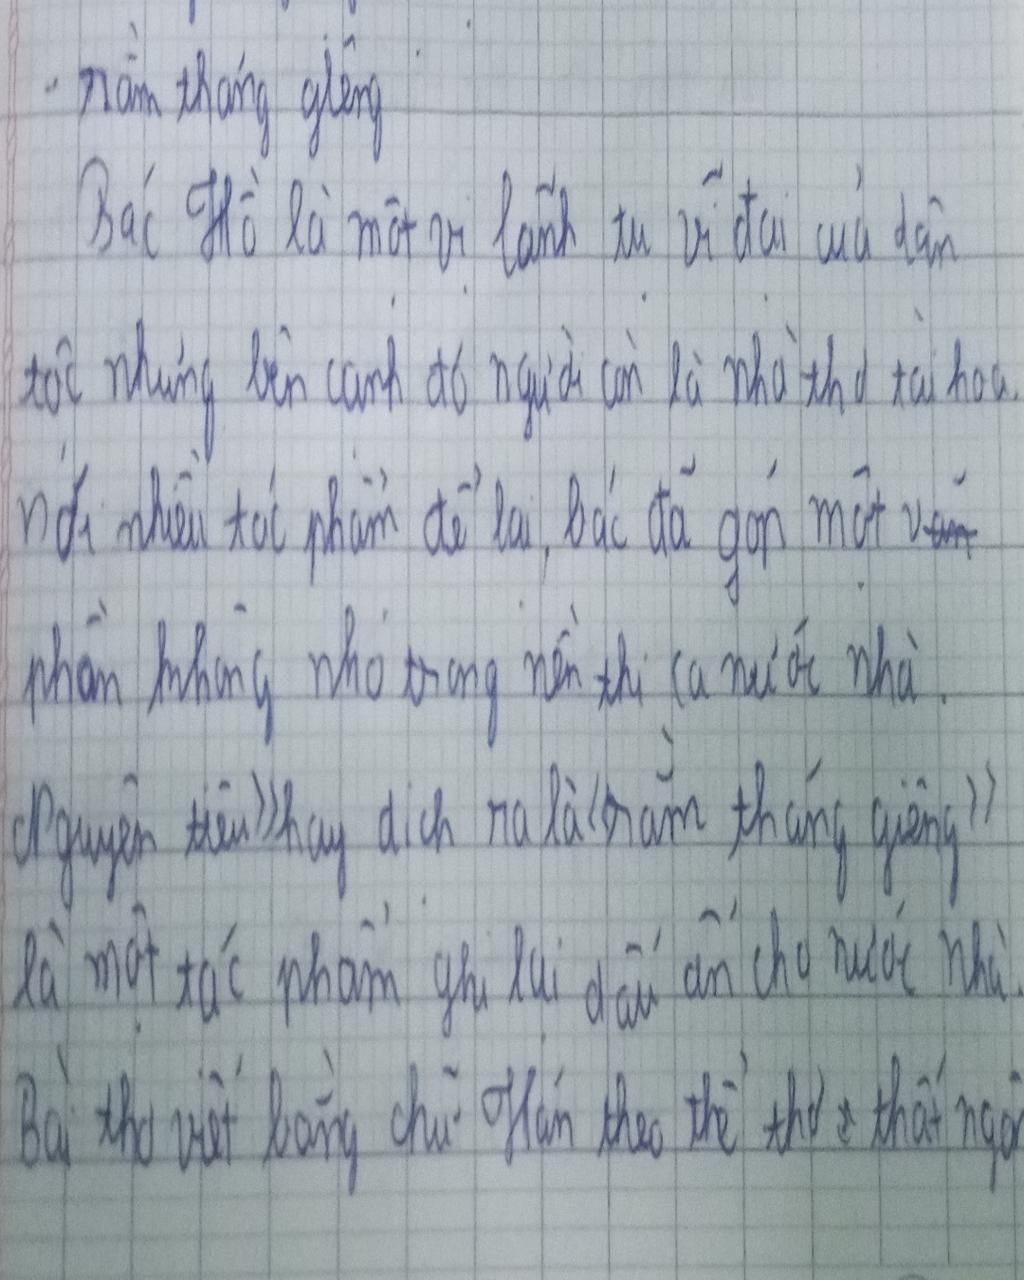 - rằm tháng giêng
Bác Hồ là một vị lãnh tụ vĩ đại của dân
tộc nhưng bên cạnh đó người còn là nhà thơ tài hoa.
Với nhiều tác phẩm để lại, bác đã góp một
phần không nhỏ trong nền thi ca nước nhà.
Nguyên tiêu>> hay dịch ra là <<rằm tháng giêng>>
là một tác phẩm ghi lại dấu ấn cho nước nhà.
Bài thơ viết bằng chữ Hán theo thể thơ thất ngôn